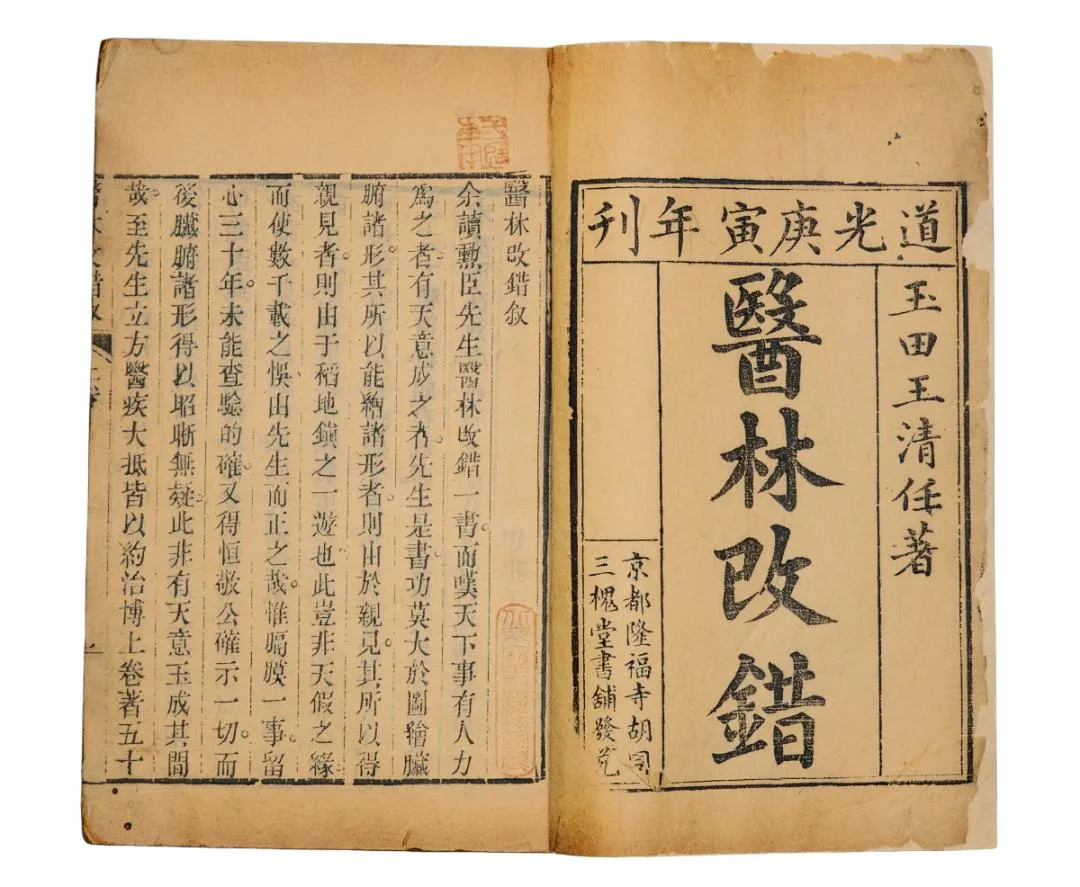 道光庚寅年刊
玉田王清任著
醫林改錯
京都隆福寺胡同
三槐堂書鋪發兌
醫林改錯叙
余讀勲臣先生醫林改錯一書而嘆天下事有人力
爲之者有天意成之者先生是書功莫大於圖繪臟
腑諸形其所以能繪諸形者則由於親見其所以得
親見者則由于稻地鎮之一遊也此豈非天假之緣
而使數千載之悞由先生而正之哉惟膈膜一事留
心三十年未能查騐的確又得恒敬公確示一切而
後臟腑諸形得以昭晰無疑此非有天意玉成其間
哉至先生立方醫疾大抵皆以約治博上卷著五十